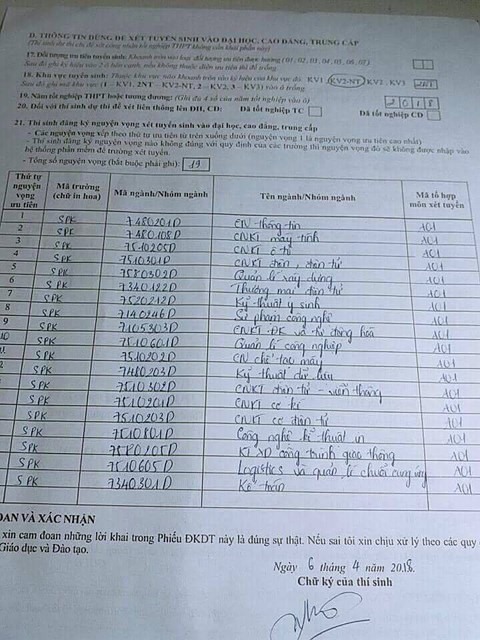 D. THÔNG TIN DÙNG ĐỂ XÉT TUYỂN SINH VÀO ĐẠI HỌC, CAO ĐẲNG, TRUNG CẤP
(Thí sinh dự thi chỉ để xét công nhận tốt nghiệp THPT không cần khai phần này)
17. Đối tượng ưu tiên tuyển sinh:
18. Khu vực tuyển sinh: KV1 KV2-NT KV2 KV3 2NT
Sau đó ghi mã khu vực (1 – KV1, 2NT – KV2-NT, 2 – KV2, 3 – KV3) vào ô trống
19. Năm tốt nghiệp THPT hoặc tương đương: (Ghi đủ 4 số của năm tốt nghiệp vào ô) 2018
20. Đối với thí sinh dự thi để xét liên thông lên ĐH, CĐ: Đã tốt nghiệp TC Đã tốt nghiệp CĐ
21. Thí sinh đăng ký nguyện vọng xét tuyển sinh vào đại học, cao đẳng, trung cấp
- Các nguyện vọng xếp theo thứ tự ưu tiên từ trên xuống dưới (nguyện vọng 1 là nguyện vọng ưu tiên cao nhất)
- Thí sinh đăng ký nguyện vọng nào không đúng với quy định của các trường thì nguyện vọng đó sẽ không được nhập vào
hệ thống phần mềm để trường xét tuyển.
- Tổng số nguyện vọng (bắt buộc phải ghi): 19
Thứ tự nguyện vọng ưu tiên Mã trường (chữ in hoa) Mã ngành/Nhóm ngành Tên ngành/Nhóm ngành Mã tổ hợp môn xét tuyển
1 SPK 7480201D CN thông tin A01
2 SPK 7480108D CNKT máy tính A01
3 SPK 7510205D CNKT ô tô A01
4 SPK 7510301D CNKT điện, điện tử A01
5 SPK 7580302D Quản lí xây dựng A01
6 SPK 7340122D Thương mại điện tử A01
7 SPK 7520212D Kỹ thuật y sinh A01
8 SPK 7140246D Sư phạm công nghệ A01
9 SPK 7105303D CNKT ĐK và tự động hóa A01
10 SPK 7510601D Quản lí công nghiệp A01
SPK 7510202D CN chế tạo máy A01
SPK 7480203D Kỹ thuật dữ liệu A01
SPK 7510302D CNKT điện tử - viễn thông A01
SPK 7510201D CNKT cơ khí A01
SPK 7510203D CNKT cơ điện tử A01
SPK 7510801D Công nghệ kĩ thuật in A01
SPK 7580205D KT XD công trình giao thông A01
SPK 7510605D Logistics và quản lí chuỗi cung ứng A01
SPK 7340301D Kế toán A01
ĐOAN VÀ XÁC NHẬN
xin cam đoan những lời khai trong Phiếu ĐKDT này là đúng sự thật. Nếu sai tôi xin chịu xử lý theo các quy
Giáo dục và Đào tạo.
Ngày 6 tháng 4 năm 2018.
Chữ ký của thí sinh